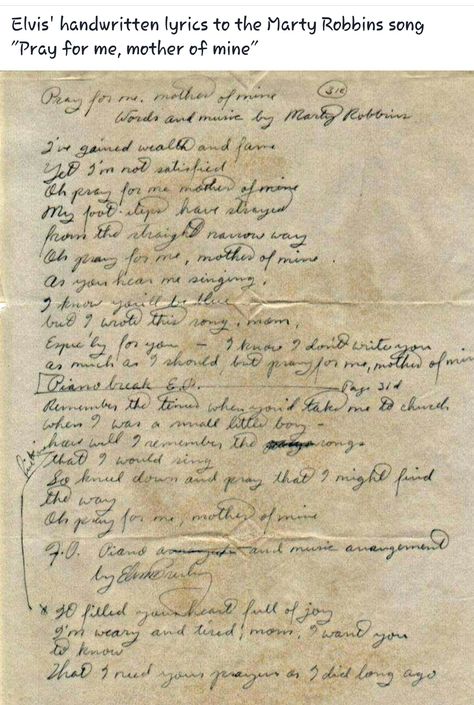 Elvis' handwritten lyrics to the Marty Robbins song
"Pray for me, mother of mine"
Pray for me, mother of mine
Words and music by Marty Robbins
I've gained wealth and fame
Yet I'm not satisfied
Oh pray for me mother of mine
My foot-steps have strayed
from the straight narrow way
Oh pray for me, mother of mine.
As you hear me singing,
I know you'll be blue
but I wrote this song, mom,
for you – I know I don't write you
as much as I should but pray for me, mother of mine
Piano break E.P. Page 31d
Remember the times when you'd take me to church
when I was a small little boy –
how well I remember the songs
that I would sing
So kneel down and pray that I might find
the way
Oh pray for me, mother of mine
Piano and music arrangement
by Elvis Presley
* It filled your heart full of joy
I'm weary and tired, mom, I want you
to know
That I need your prayers as I did long ago